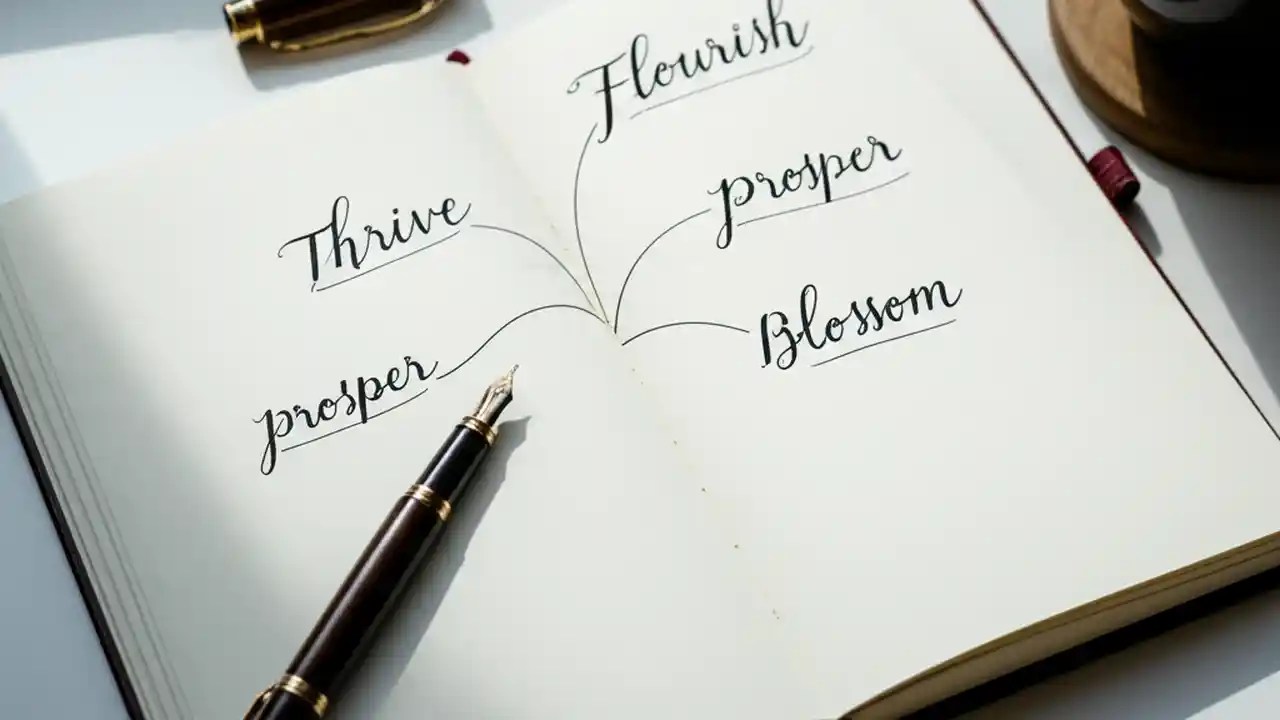 Flourish
Thrive
prosper
prosper
Blossom